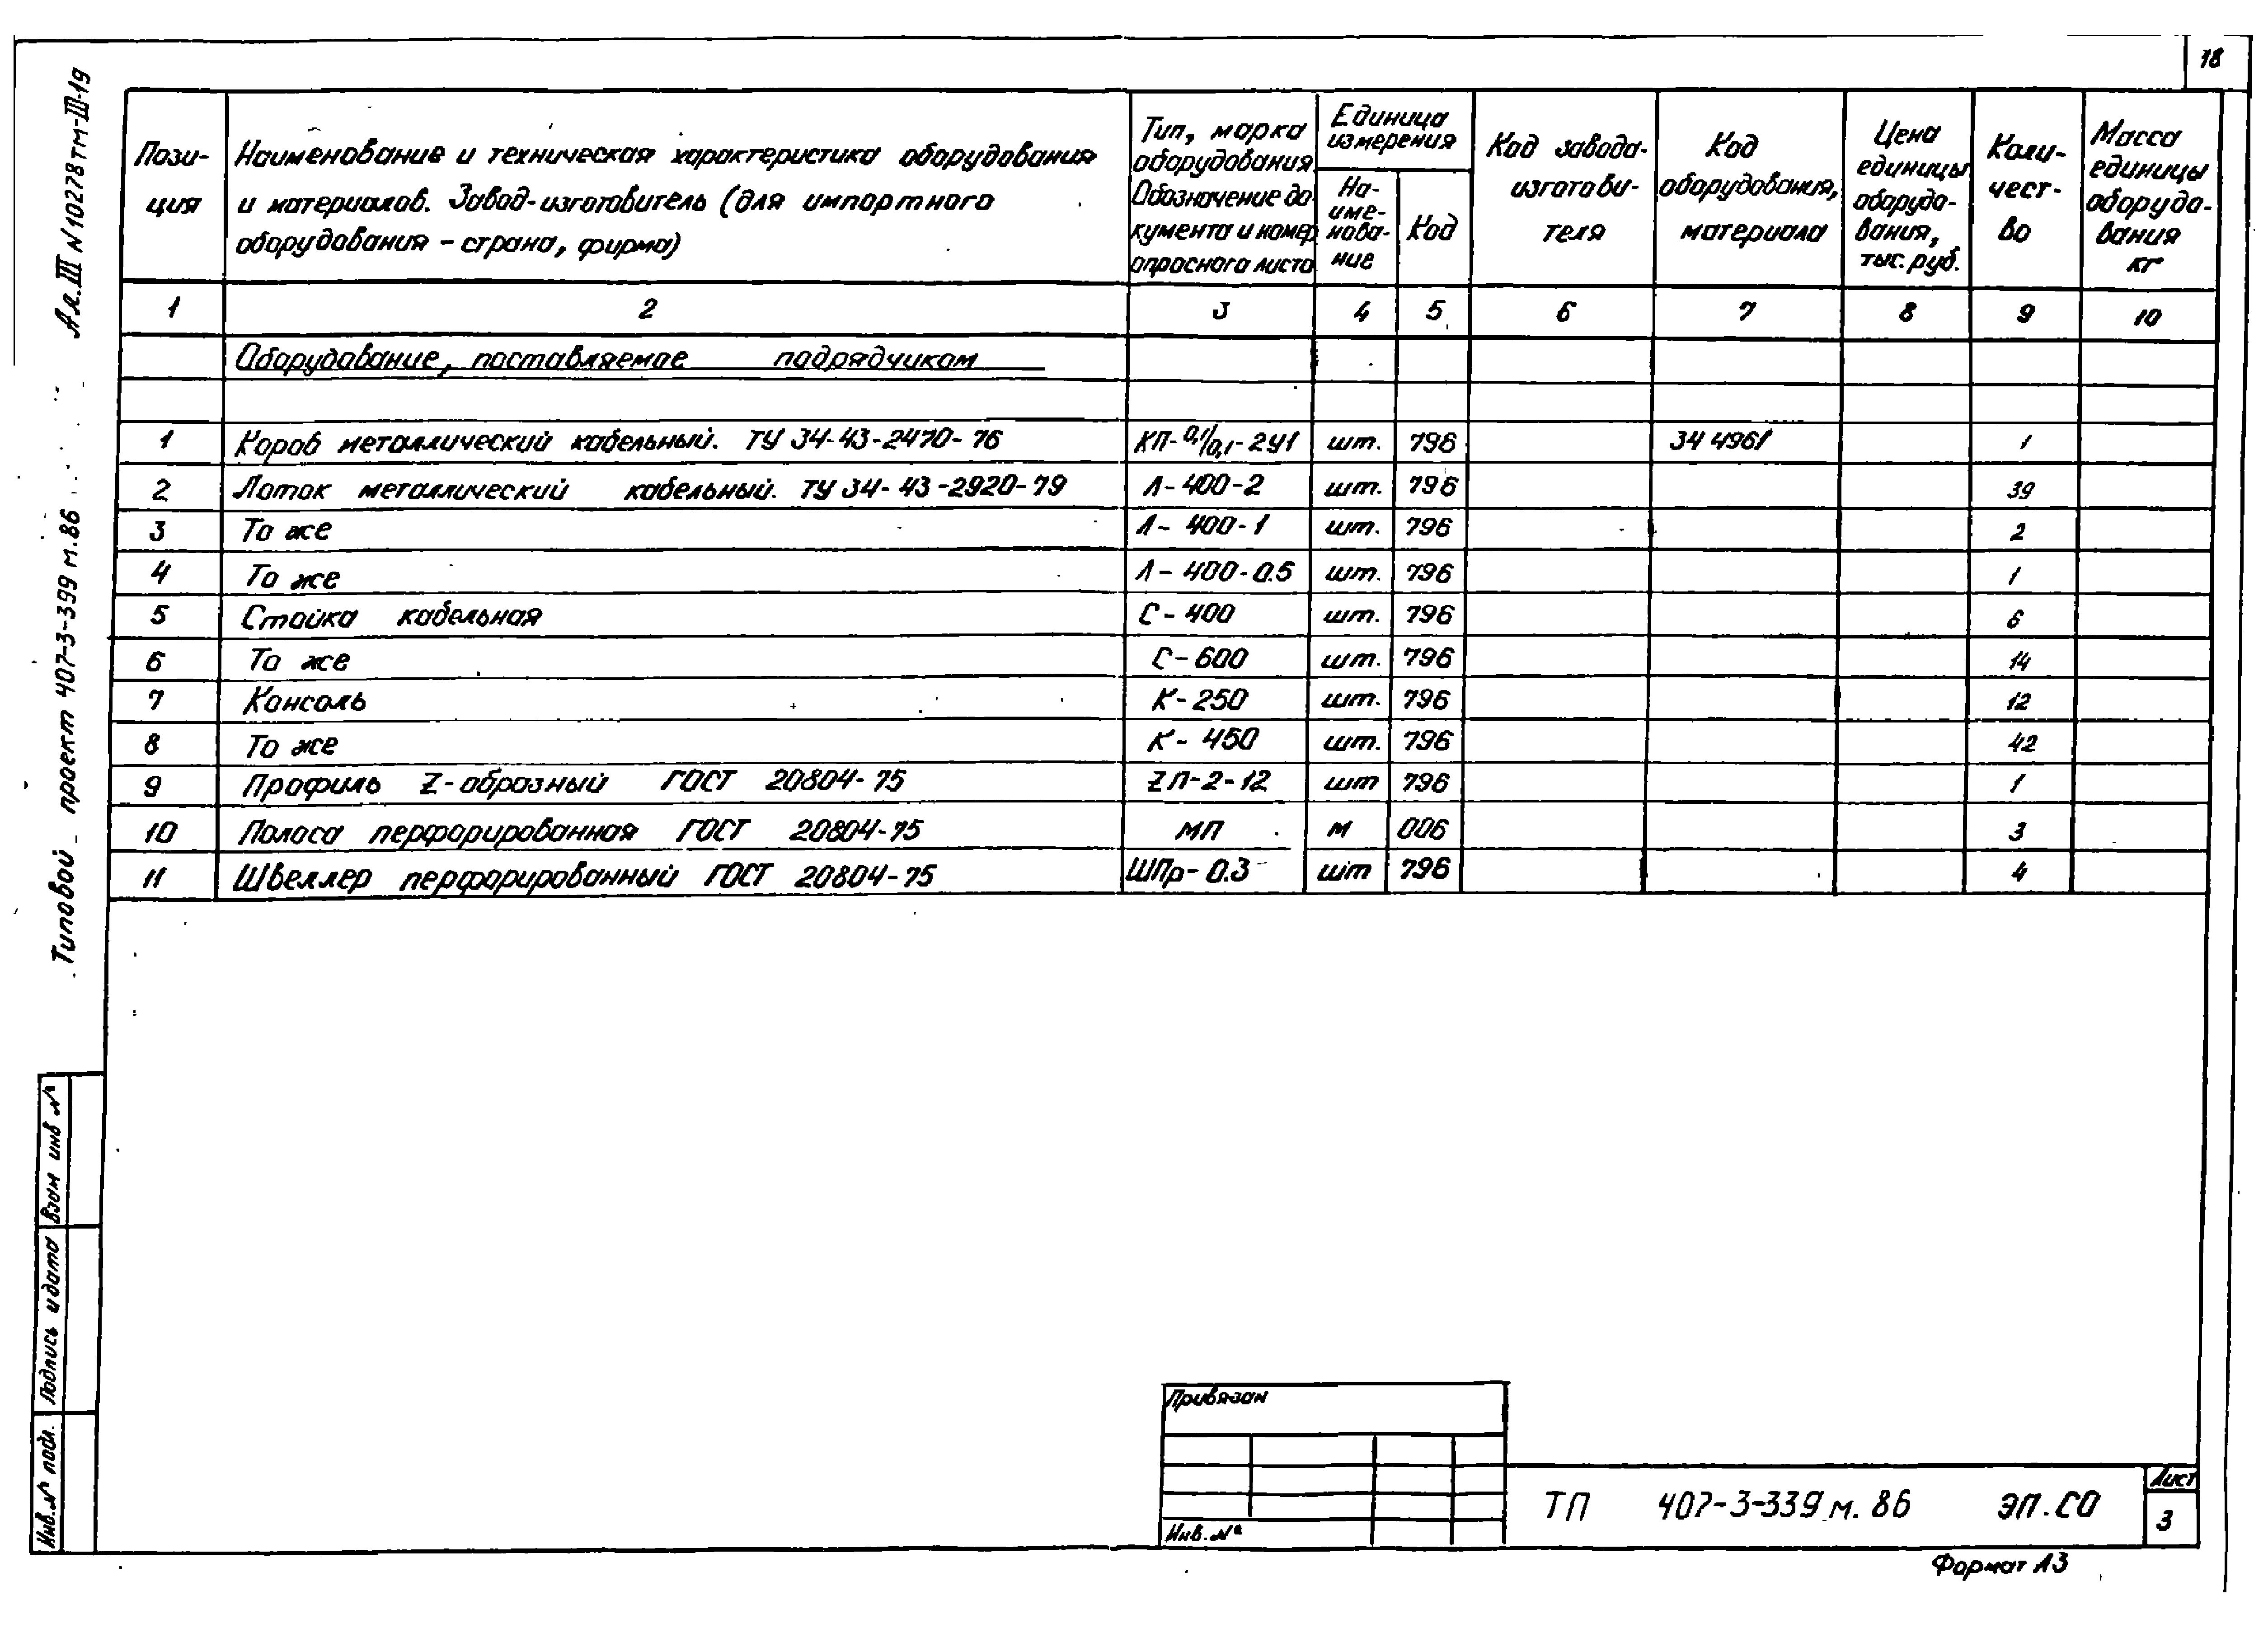 18
Ал. III N 10278тм-III-19
Типовой проект 407-3-399 м.86
Пози-
ция
Наименование и техническая характеристика оборудования
и материалов. Завод-изготовитель (для импортного
оборудования - страна, фирма)
Тип, марка
оборудования.
Обозначение до-
кумента и номер
опросного листа
Единица
измерения
На-
име-
нова-
ние
Код
Код завода-
изготови-
теля
Код
оборудования,
материала
Цена
единицы
оборудо-
вания,
тыс. руб.
Коли-
чест-
во
Масса
единицы
оборудо-
вания
кг
1 2 3 4 5 6 7 8 9 10
Оборудование, поставляемое подрядчиком
1 Короб металлический кабельный. ТУ 34-43-2470-76 КП-0,1/0,1-2У1 шт. 796 34 4961 1
2 Лоток металлический кабельный. ТУ 34-43-2920-79 Л-400-2 шт. 796 39
3 То же Л-400-1 шт. 796 2
4 То же Л-400-0.5 шт. 796 1
5 Стойка кабельная С-400 шт. 796 6
6 То же С-600 шт. 796 14
7 Консоль К-250 шт. 796 12
8 То же К-450 шт. 796 42
9 Профиль Z-образный ГОСТ 20804-75 ZП-2-12 шт 796 1
10 Полоса перфорированная ГОСТ 20804-75 МП м 006 3
11 Швеллер перфорированный ГОСТ 20804-75 ШПр-0.3 шт 796 4
Взам инв №
Подпись и дата
Инв.№ подл.
Привязан
Инв.№
ТП 407-3-339 м. 86 ЭП.СО
Лист
3
Формат А3